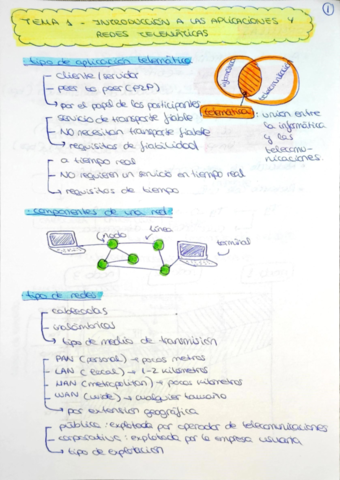 1
TEMA 1 - INTRODUCCIÓN A LAS APLICACIONES Y
REDES TELEMÁTICAS
tipo de aplicación telemática
cliente/servidor
peer to peer (P2P)
↳ por el papel de los participantes
servicio de transporte fiable
NO necesitan transporte fiable
↳ requisitos de fiabilidad
a tiempo real
NO requieren un servicio en tiempo real
↳ requisitos de tiempo
informática
telecomunicación
telemática : unión entre
la informática
y las
telecomu-
nicaciones.
componentes de una red
nodo
línea
terminal
tipo de redes
cableadas
inalámbricas
↳ tipo de medio de transmisión
PAN (personal) → pocos metros
LAN (local) → 1-2 kilómetros
MAN (metropolitan) → pocos kilómetros
WAN (wide) → cualquier tamaño
↳ por extensión geográfica
pública : explotada por operador de telecomunicaciones
corporativa : explotada por la empresa usuaria
↳ tipo de explotación